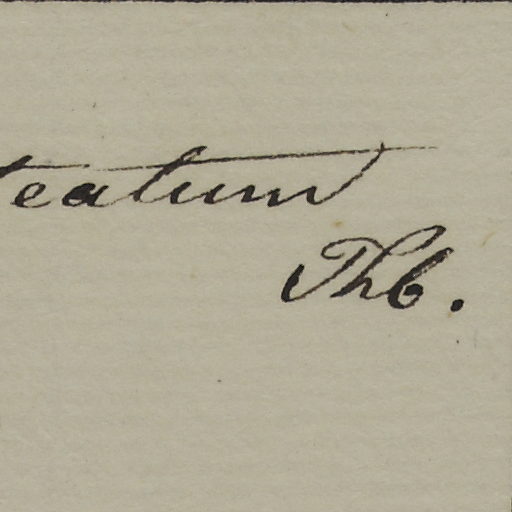 teatum
Thb.